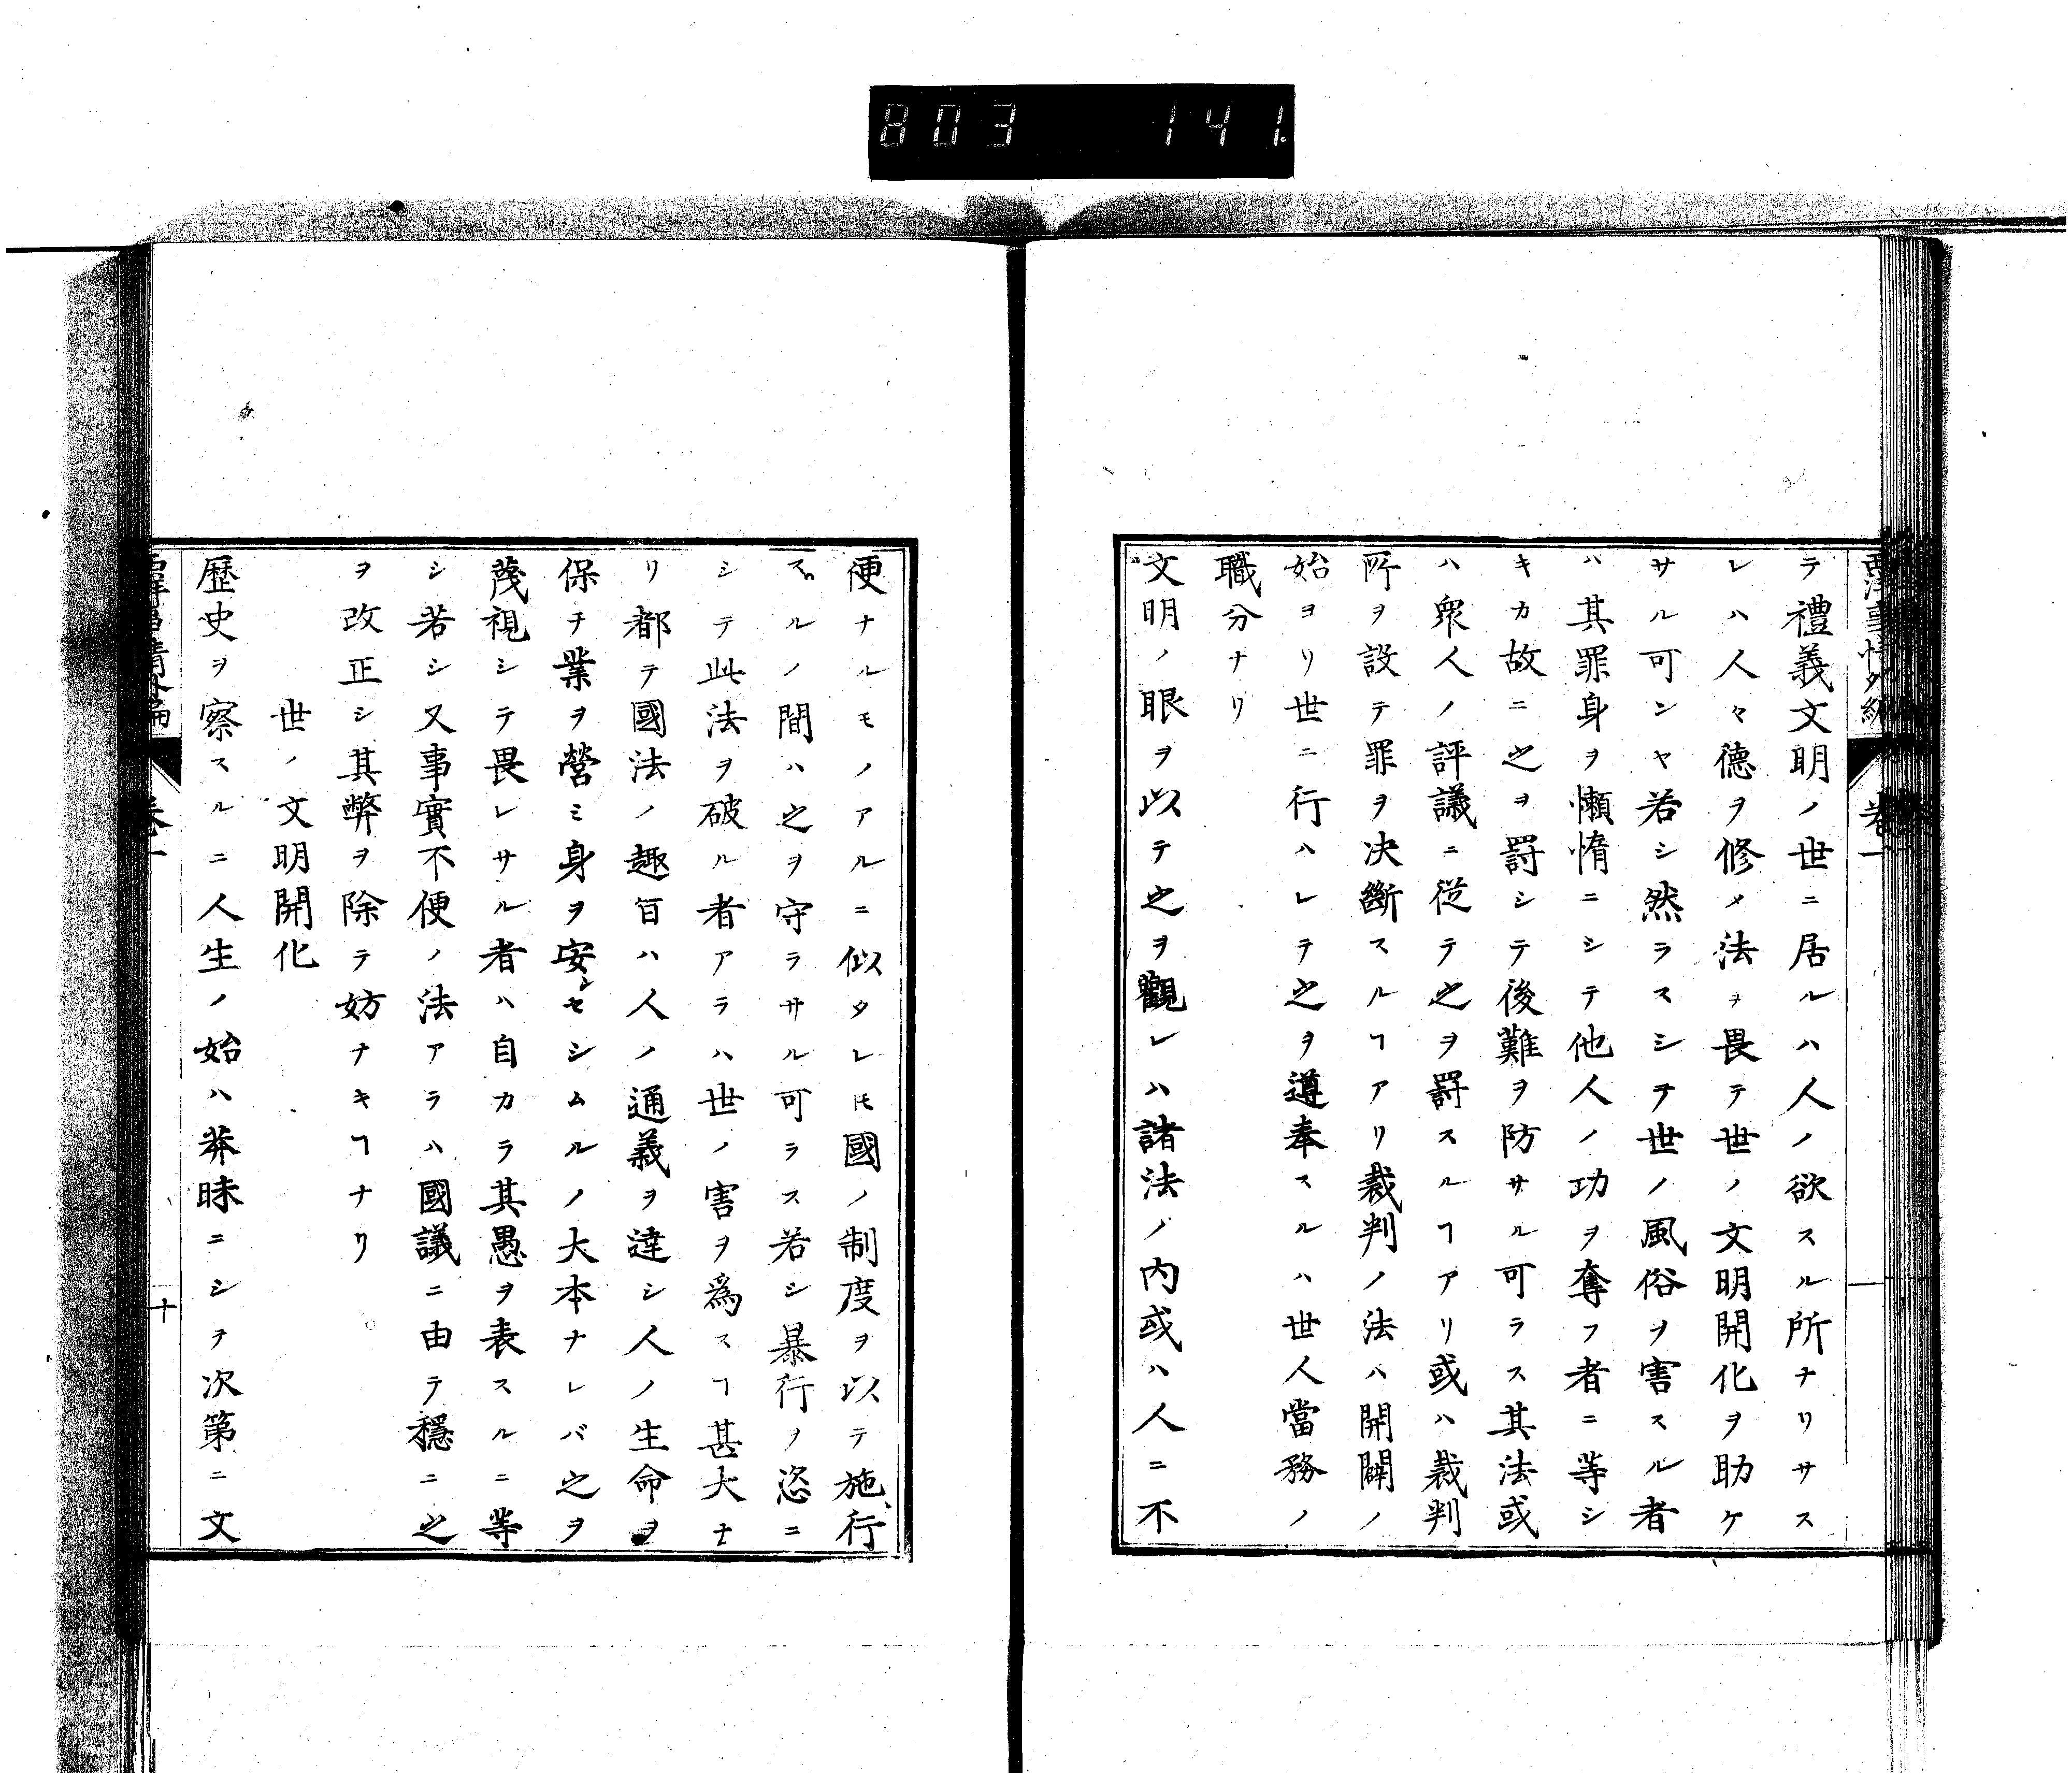 803 141
西洋事情外編 卷一
テ禮義文明ノ世ニ居ルハ人ノ欲スル所ナリサス
レハ人々德ヲ修メ法ヲ畏テ世ノ文明開化ヲ助ケ
サル可ンヤ若シ然ラスシテ世ノ風俗ヲ害スル者
ハ其罪身ヲ懶惰ニシテ他人ノ功ヲ奪フ者ニ等シ
キカ故ニ之ヲ罸シテ後難ヲ防サル可ラス其法或
ハ衆人ノ評議ニ從テ之ヲ罸スルヿアリ或ハ裁判
所ヲ設テ罪ヲ决斷スルヿアリ裁判ノ法ハ開闢ノ
始ヨリ世ニ行ハレテ之ヲ遵奉スルハ世人當務ノ
職分ナリ
文明ノ眼ヲ以テ之ヲ觀レハ諸法ノ內或ハ人ニ不
便ナルモノアルニ似タレ𪜈國ノ制度ヲ以テ施行
スルノ間ハ之ヲ守ラサル可ラス若シ暴行ヲ恣ニ
シテ此法ヲ破ル者アラハ世ノ害ヲ爲スヿ甚大ナ
リ都テ國法ノ趣旨ハ人ノ通義ヲ達シ人ノ生命ヲ
保チ業ヲ營ミ身ヲ安ンセシムルノ大本ナレバ之ヲ
蔑視シテ畏レサル者ハ自カラ其愚ヲ表スルニ等
シ若シ又事實不便ノ法アラハ國議ニ由テ穩ニ之
ヲ改正シ其弊ヲ除テ妨ナキヿナリ
世ノ文明開化
歷史ヲ察スルニ人生ノ始ハ莽昧ニシテ次第ニ文
西洋事情外編 卷一 十